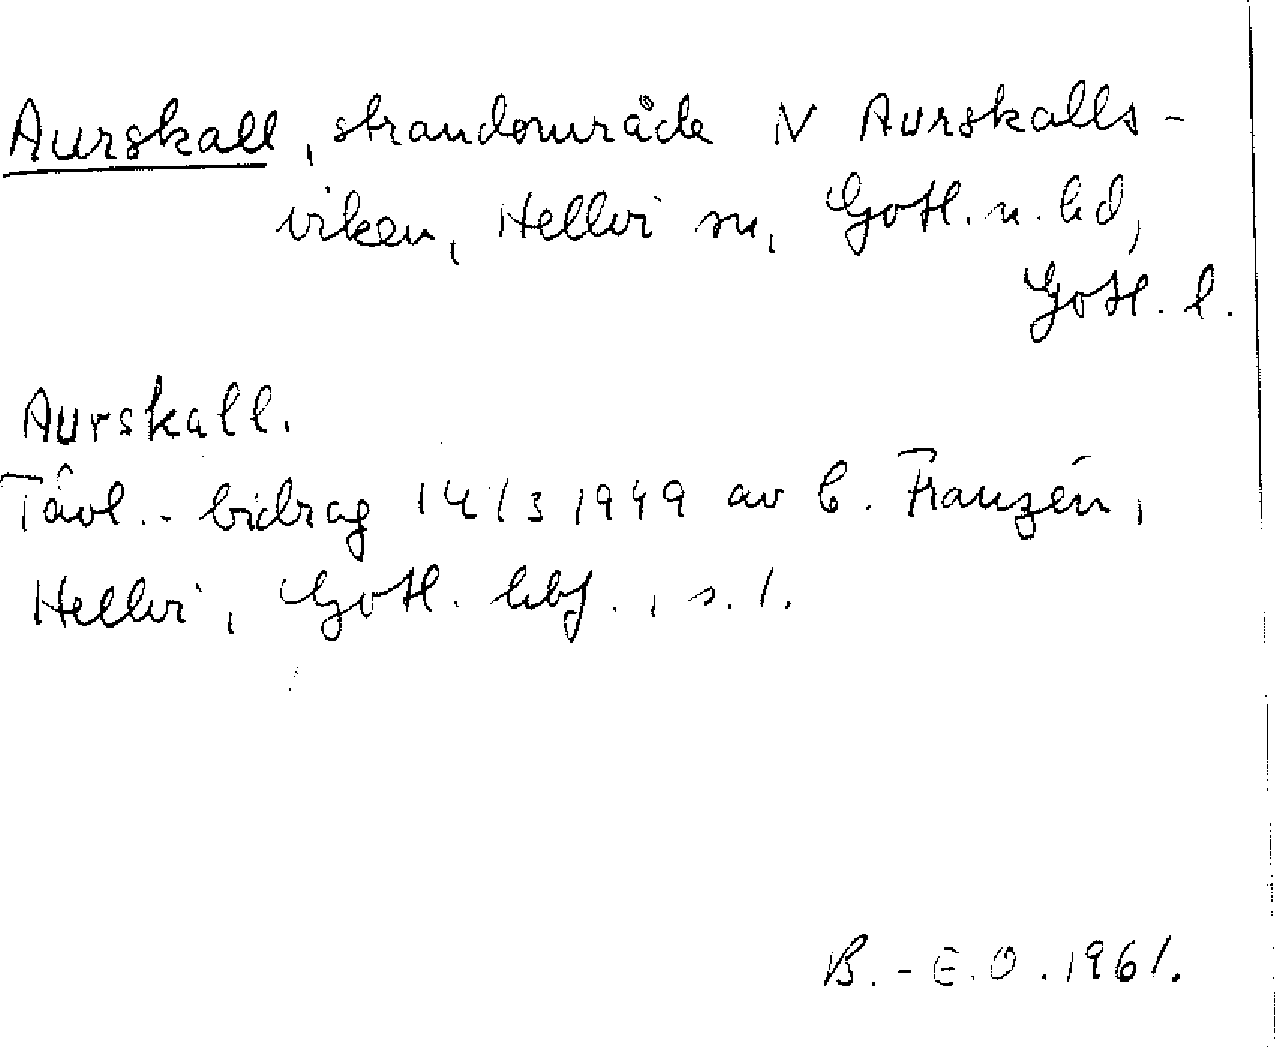 Aurskall, strandområde N Aurskalls-
viken, Hellvi sn, Gotl. n. hd,
Gotl. l.
Aurskall.
Tävl.-bidrag 14/3 1949 av C. Franzén,
Hellvi, Gotl. hbf., s. 1.
B.-E.O. 1961.